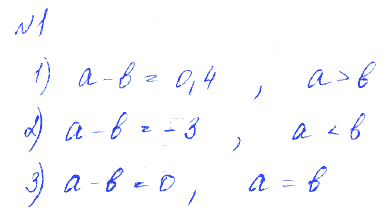 №1
1) a - в = 0,4 , a > в
2) a - в = -3 , a < в
3) a - в = 0 , a = в